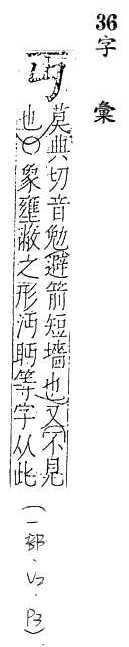 36
字彙
丏
莫典切音勉避箭短墻也又不見
也○象壅蔽之形沔眄等字从此
(一部.V2.P3)